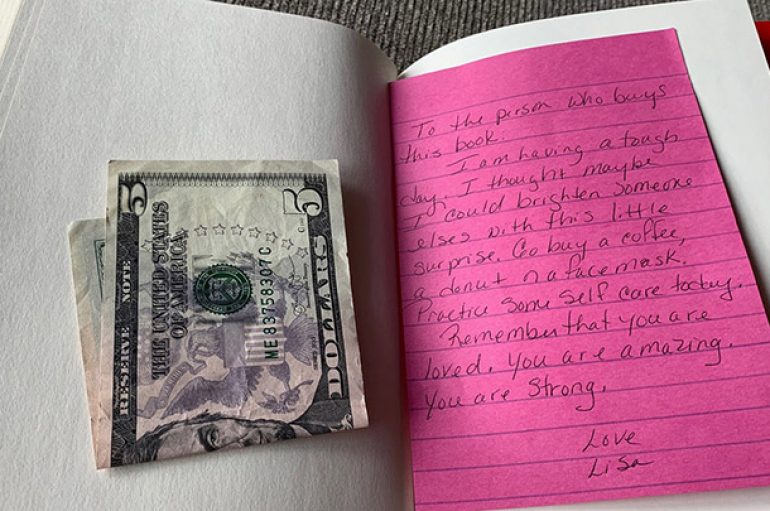 5
5
THE UNITED STATES
OF AMERICA
RESERVE NOTE
ME83758307C
DOLLARS
To the person who buys
this book:
I am having a tough
day. I thought maybe
I could brighten someone
elses with this little
surprise. Go buy a coffee,
a donut n a face mask.
Practice some self care today.
Remember that you are
loved. You are amazing.
You are strong.
Love
Lisa